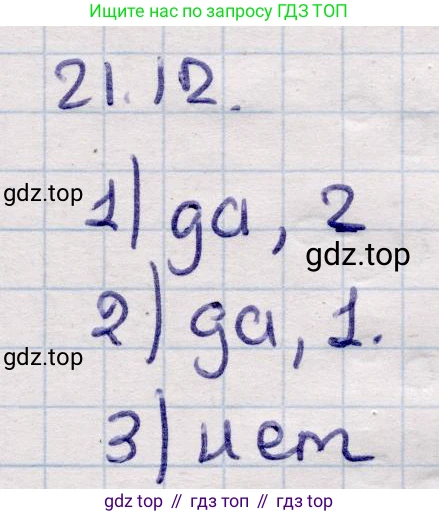 Ищите нас по запросу ГДЗ ТОП
21.12.
gdz.top
1) да, 2
gdz.top
2) да, 1.
gdz.top
3) нет
gdz top // гдз топ // gdz top